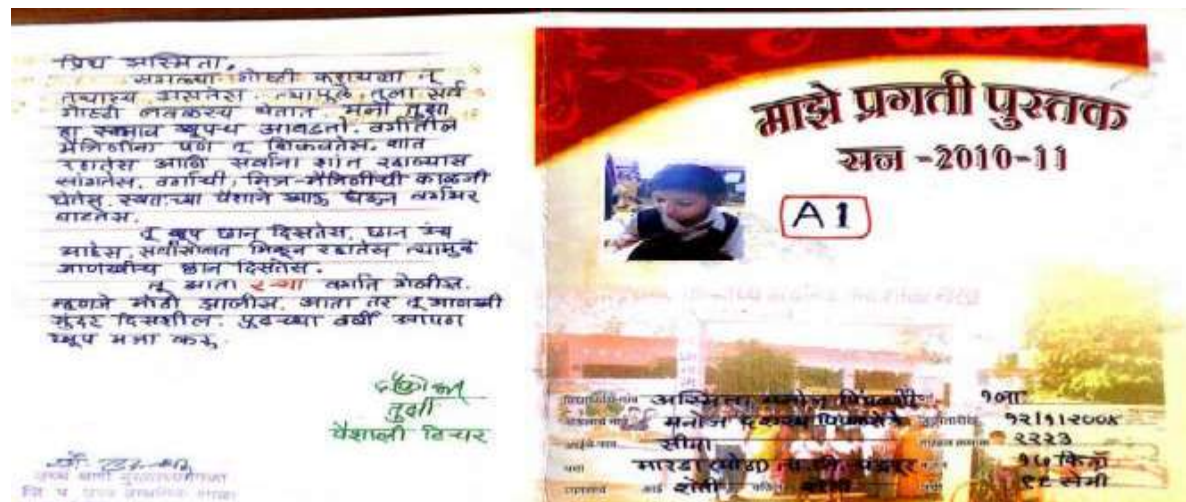 प्रिय अस्मिता,
सगळ्या गोष्टी करायला तू
तयारच असतेस. त्यामुळे तुला सर्व
गोष्टी लवकरच येतात. मला तुझा
हा स्वभाव खूपच आवडतो. वर्गातील
मैत्रिणींना पण तू शिकवतेस. शांत
रहातेस आणि सर्वांना शांत रहाण्यास
सांगतेस. वर्गाची, मित्र-मैत्रिणींची काळजी
घेतेस. स्वतःच्या पैशाने खाऊ घेऊन वर्गभर
वाटतेस.
तू खूप छान दिसतेस. छान उंच
आहेस. सर्वांसोबत मिळून रहातेस त्यामुळे
आणखीच छान दिसतेस.
तू आता २ऱ्या वर्गात गेलीस.
म्हणजे मोठी झालीस. आता तर तू आणखी
सुंदर दिसशील. पुढच्या वर्षी आपण
खूप मजा करू.
तुझी
वैशाली टिचर
माझे प्रगती पुस्तक
सन -2010-11
A1
अस्मिता मनोज १ला
मनोज १२/१/२००४
सीमा २२२३
मारडा १७ किलो
शेती सेमी